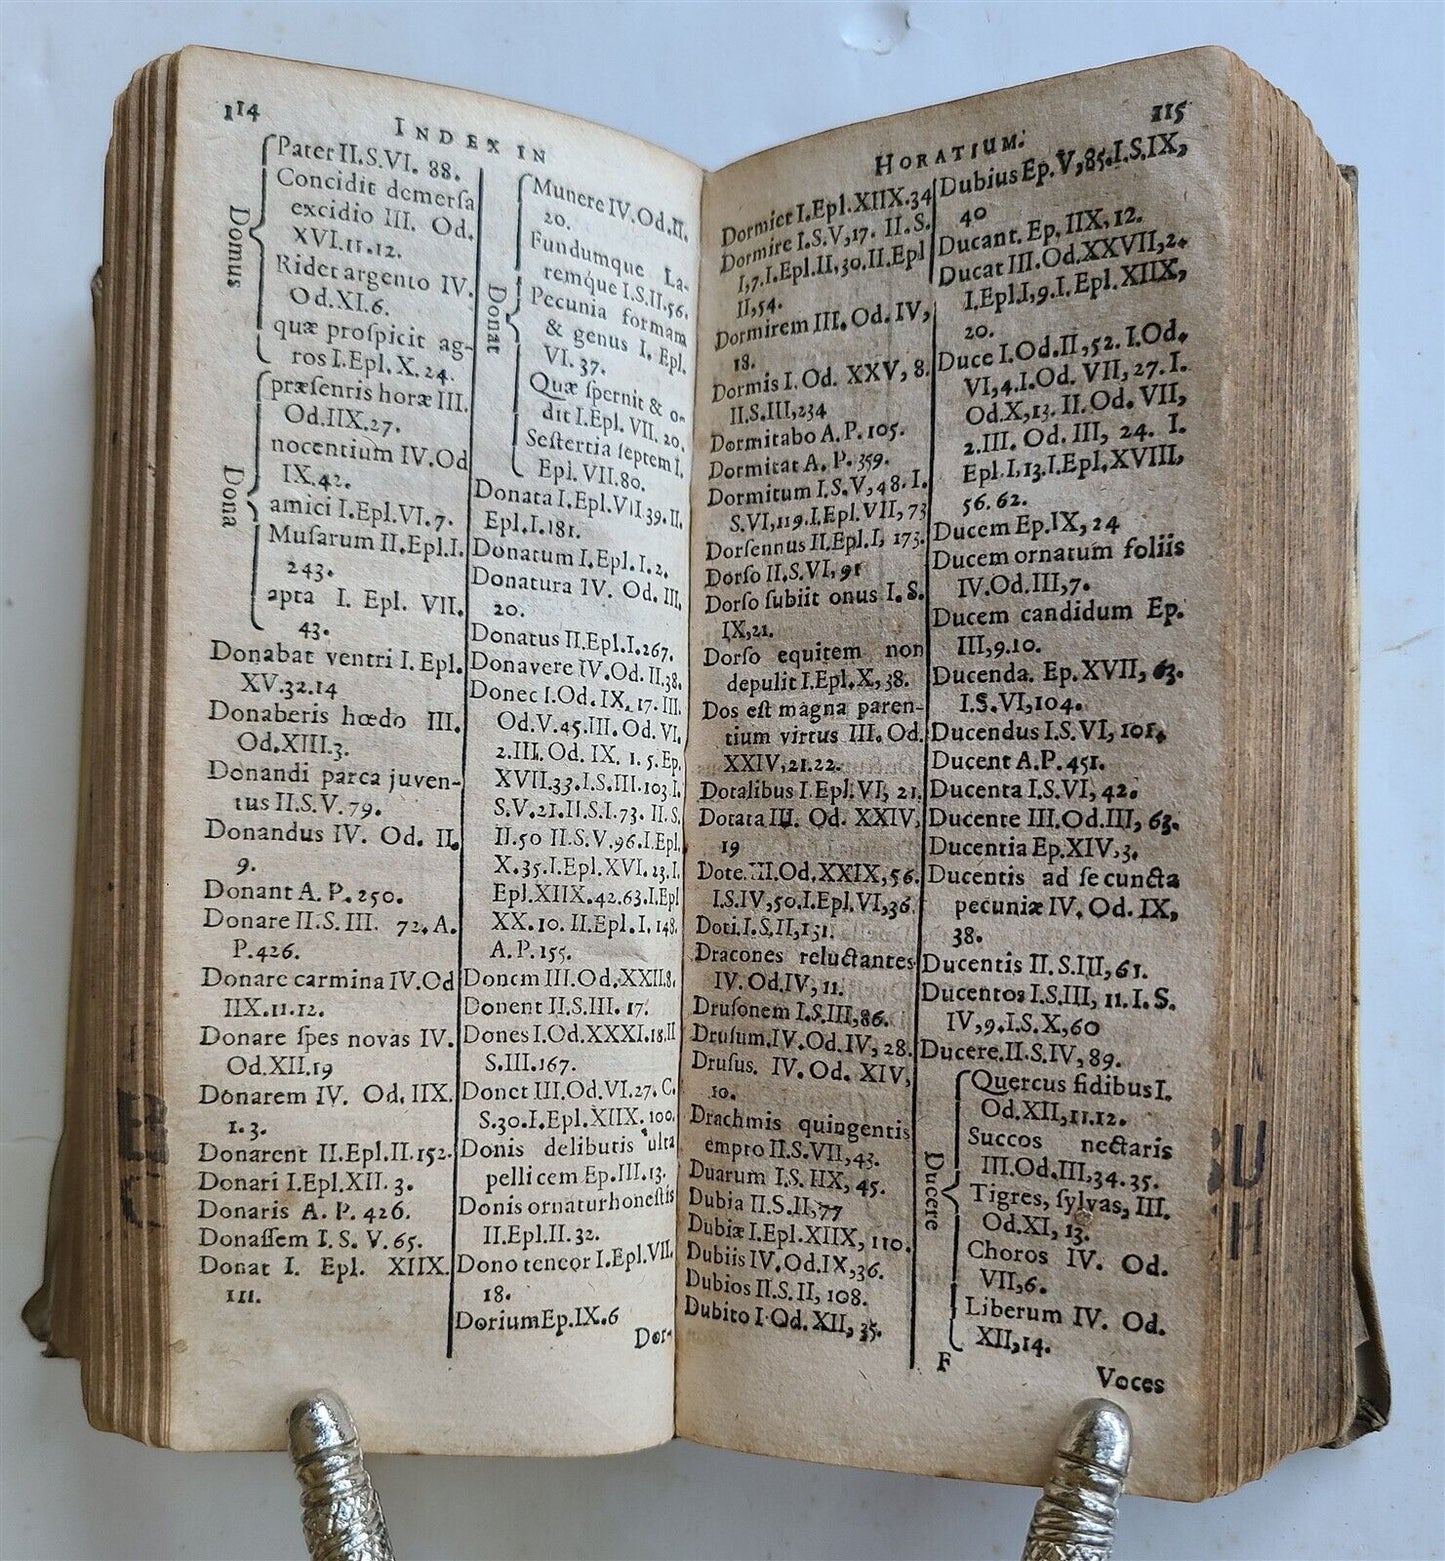 114
INDEX IN
Domus
Pater II.S.VI. 88.
Concidit demerſa
excidio III. Od.
XVI.11.12.
Ridet argento IV.
Od.XI.6.
quæ proſpicit ag-
ros I.Epl.X.24.
Dona
præſentis horæ III.
Od.IIX.27.
nocentium IV.Od
IX.42.
amici I.Epl.VI.7.
Muſarum II.Epl.I.
243.
apta I. Epl. VII.
43.
Donabat ventri I. Epl.
XV.32.14
Donaberis hœdo III.
Od.XIII.3.
Donandi parca juven-
tus II.S.V.79.
Donandus IV. Od. II.
9.
Donant A. P. 250.
Donare II.S.III. 72. A.
P.426.
Donare carmina IV.Od
IIX.11.12.
Donare ſpes novas IV.
Od.XII.19
Donarem IV. Od. IIX.
1.3.
Donarent II.Epl.II.152.
Donari I.Epl.XII.3.
Donaris A. P. 426.
Donaſſem I. S. V. 65.
Donat I. Epl. XIIX.
111.
Donat
Munere IV.Od.II.
20.
Fundumque La-
remque I.S.II.56.
Pecunia formam
& genus I. Epl.
VI.37.
Quæ ſpernit & o-
dit I.Epl. VII. 20.
Seſtertia ſeptem I.
Epl. VII.80.
Donata I.Epl.VII.39.II.
Epl.I.181.
Donatum I.Epl.I.2.
Donatura IV. Od. III.
20.
Donatus II.Epl.I.267.
Donavere IV.Od.II.38.
Donec I.Od.IX.17.III.
Od.V.45.III. Od. VI.
2.III. Od. IX. 1. 5. Ep.
XVII.33.I.S.III.103.I.
S.V.21.II.S.I.73. II.S.
II.50 II.S.V.96.I.Epl.
X.35.I.Epl.XVI. 23.I.
Epl.XIIX.42.63.I.Epl
XX.10. II.Epl.I.148.
A.P.155.
Donem III.Od.XXII.8.
Donent II.S.III. 17.
Dones I.Od.XXXI.18.II
S.III.167.
Donet III.Od.VI.27. C.
S.30.I.Epl.XIIX.100.
Donis delibutis ulta
pellicem Ep.III.13.
Donis ornatur honeſtis
II.Epl.II.32.
Dono teneor I.Epl.VII.
18.
Dorium Ep.IX.6
Dor-
115
HORATIUM.
Dormiet I.Epl.XIIX.34
Dormire I.S.V,17. II.S.
I,7.I.Epl.II,30.II.Epl
II,54.
Dormirem III. Od. IV,
18.
Dormis I. Od. XXV, 8.
II.S.III,234
Dormitabo A. P. 105.
Dormitat A. P. 359.
Dormitum I.S.V,48.I.
S.VI,119.I.Epl.VII,73
Dorſennus II.Epl.I, 173.
Dorſo II.S.VI,91
Dorſo ſubiit onus I. S.
IX,21.
Dorſo equitem non
depulit I.Epl.X,38.
Dos eſt magna paren-
tium virtus III. Od.
XXIV,21.22.
Dotalibus I.Epl.VI, 21.
Dotata III. Od. XXIV,
19
Dote.III.Od.XXIX,56.
I.S.IV,50.I.Epl.VI,36.
Doti.I.S.II,131.
Dracones reluctantes
IV. Od.IV, 11.
Druſonem I.S.III,86.
Druſum.IV.Od.IV, 28.
Druſus. IV. Od. XIV,
10.
Drachmis quingentis
empto II.S.VII,43.
Duarum I.S. IIX, 45.
Dubia II.S.II,77
Dubiæ I.Epl.XIIX, 110.
Dubiis IV.Od.IX,36.
Dubios II.S.II, 108.
Dubito I.Od. XII, 35.
Dubius Ep.V,85.I.S.IX,
40
Ducant. Ep. IIX, 12.
Ducat III.Od.XXVII,2.
I.Epl.I,9.I.Epl.XIIX,
20.
Duce I.Od.II,52. I.Od.
VI,4.I.Od. VII, 27. I.
Od.X,13. II.Od. VII,
2.III. Od. III, 24. I.
Epl.I,13.I.Epl.XVIII,
56.62.
Ducem Ep.IX, 24
Ducem ornatum foliis
IV.Od.III,7.
Ducem candidum Ep.
III,9.10.
Ducenda. Ep. XVII, 63.
I.S.VI,104.
Ducendus I.S.VI, 101.
Ducent A.P.451.
Ducenta I.S.VI, 42.
Ducente III.Od.III, 63.
Ducentia Ep.XIV,3.
Ducentis ad ſe cuncta
pecuniæ IV. Od. IX,
38.
Ducentis II. S.III,61.
Ducentos I.S.III, 11. I. S.
IV,9.I.S.X,60
Ducere.II.S.IV, 89.
Ducere
Quercus fidibus I.
Od.XII,11.12.
Succos nectaris
III.Od.III,34.35.
Tigres, ſylvas, III.
Od.XI, 13.
Choros IV. Od.
VII,6.
Liberum IV. Od.
XII,14.
F
Voces